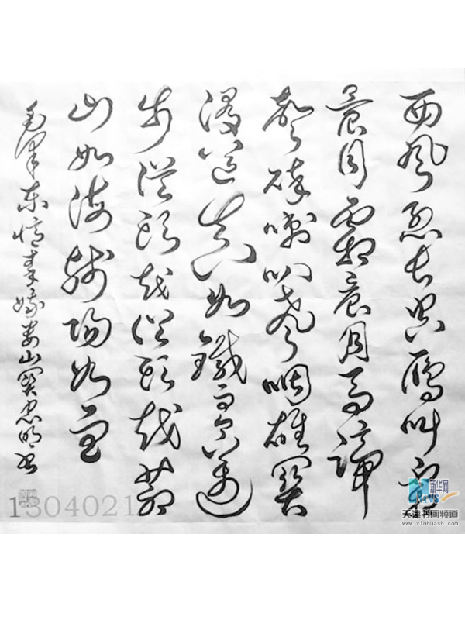 西风烈长空雁叫霜
晨月霜晨月马蹄
声碎喇叭声咽雄关
漫道真如铁而今迈
步从头越从头越苍
山如海残阳如血
毛泽东忆秦娥娄山关
1304021
新华网
NEWS
天津书画频道